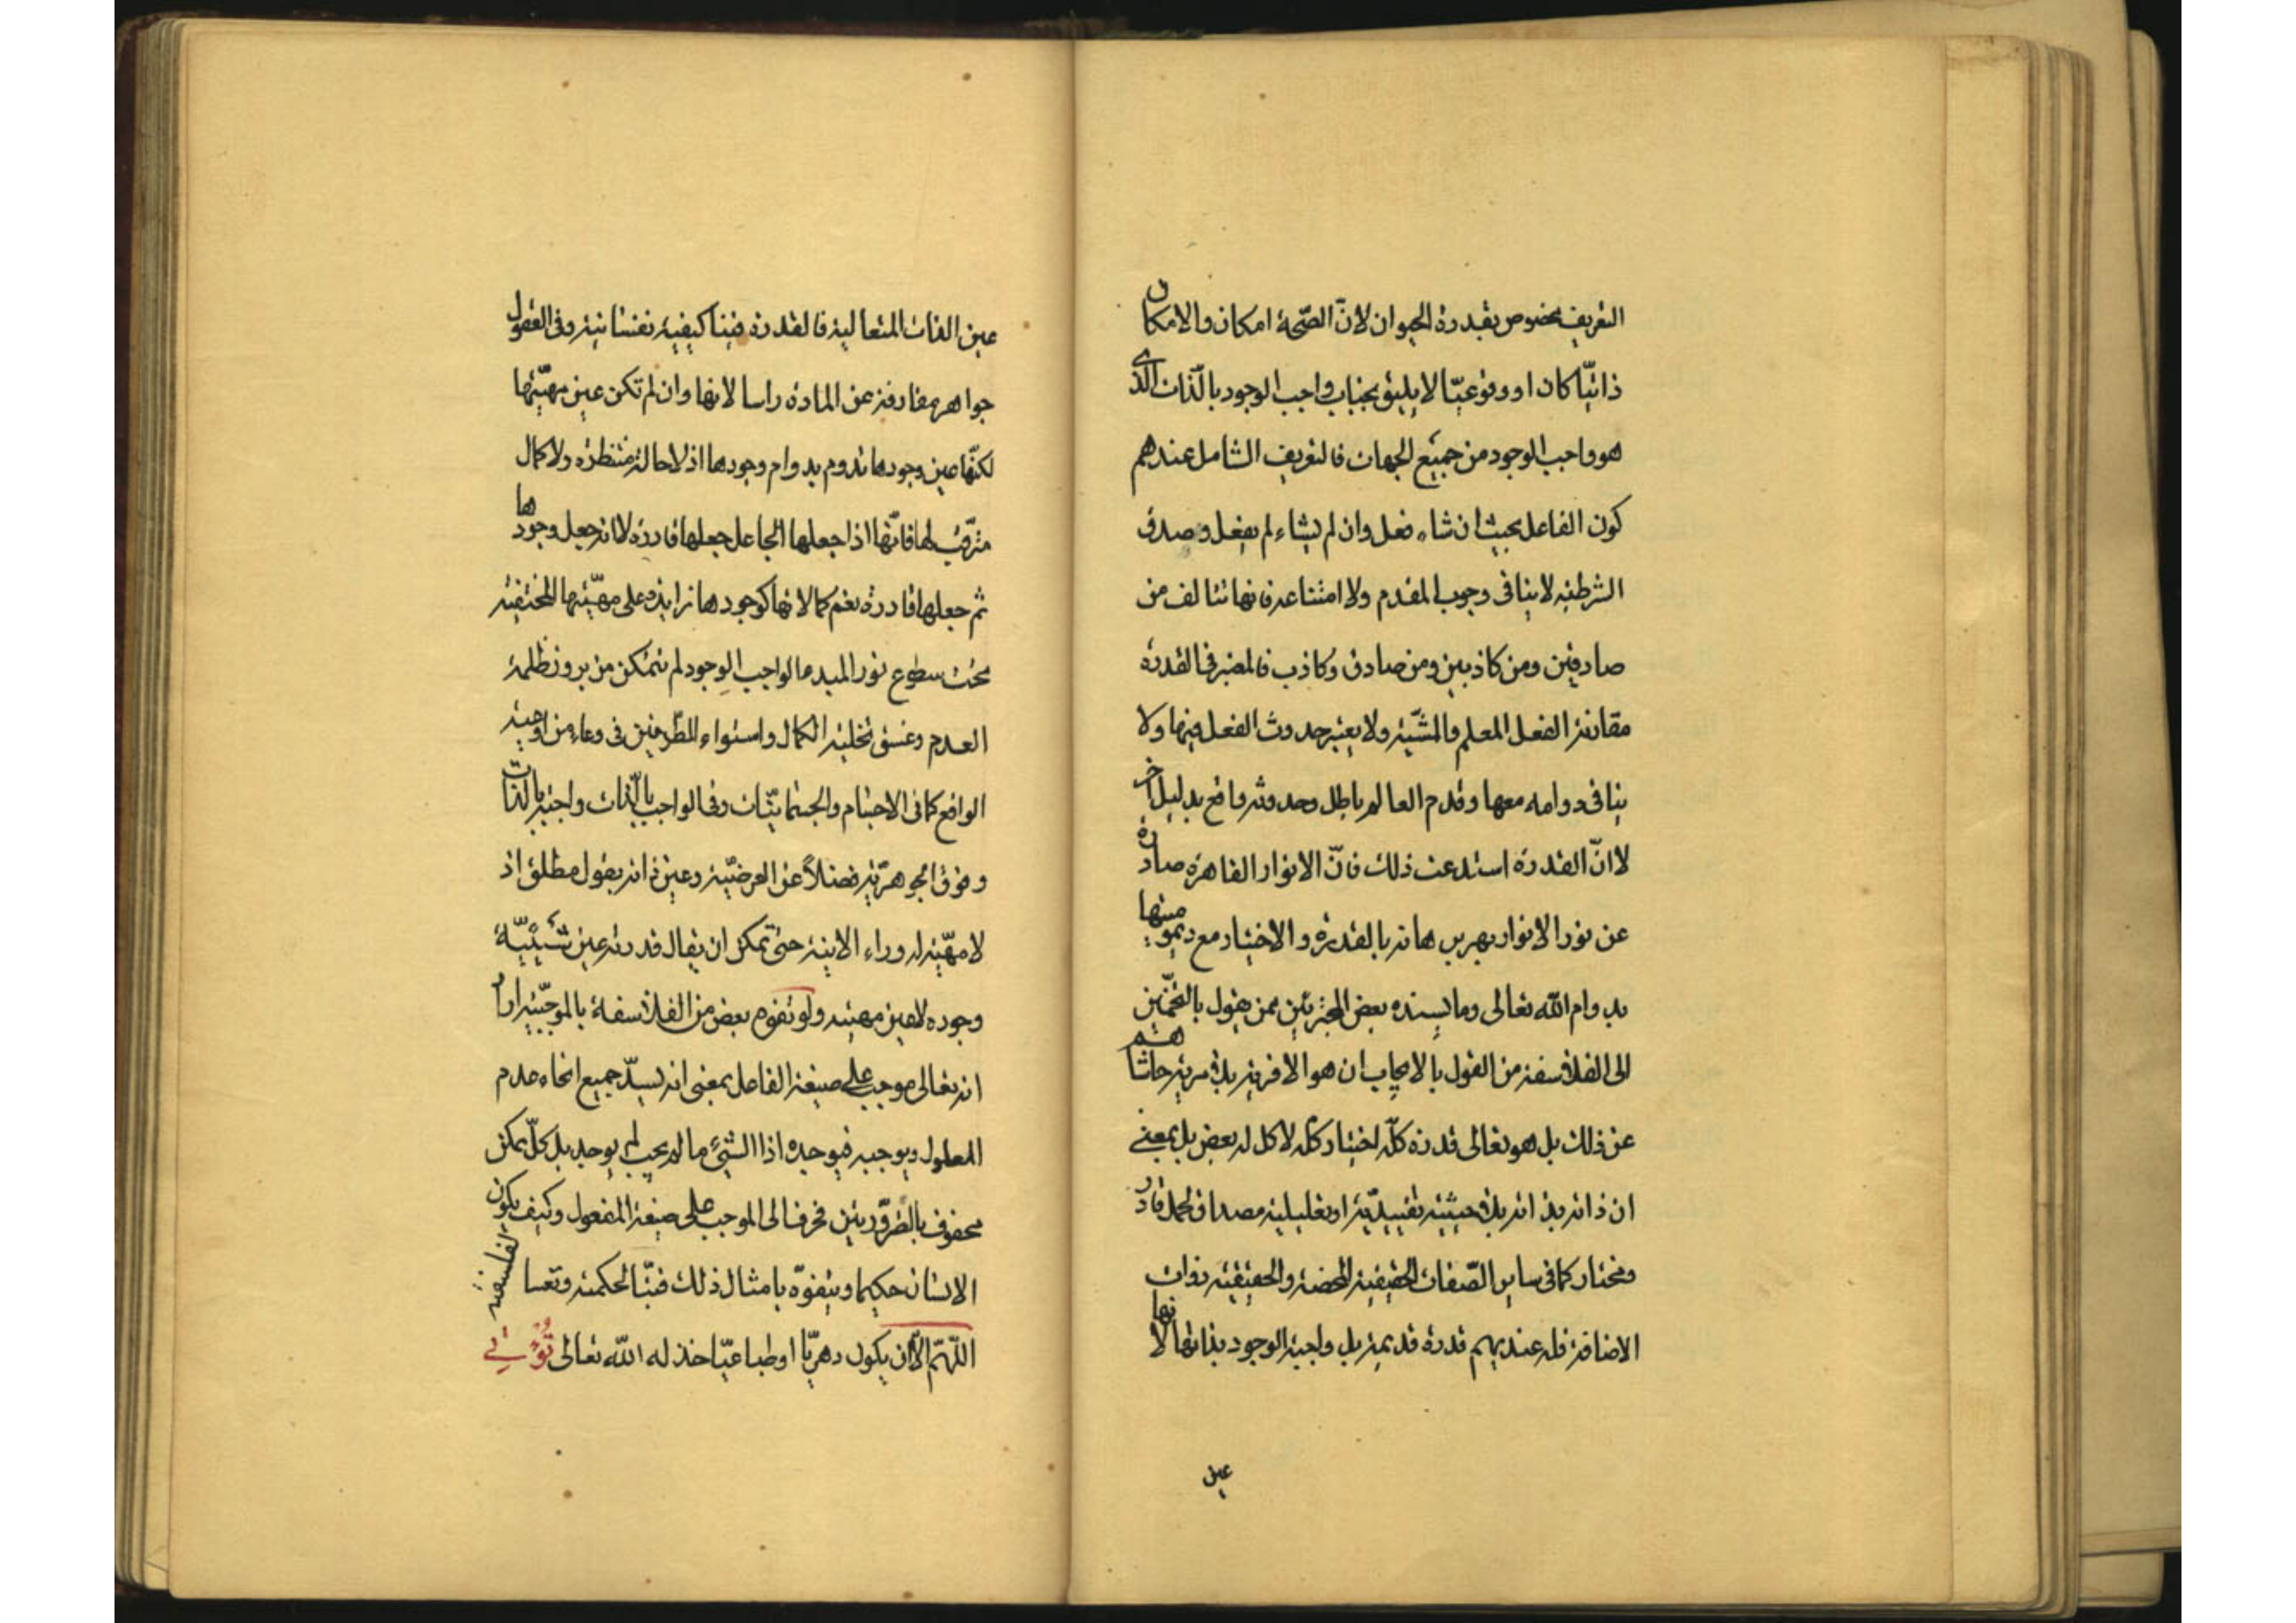 التعريف مخصوص بقدرة الحيوان لانّ الصّحة امكان والامكان
ذاتيّا كان او وقوعيّا لا يليق بجناب واجب الوجود بالذّات الّذى
هو واجب الوجود من جميع الجهات فالتعريف الشامل عندهم
كون الفاعل بحيث ان شاء فعل وان لم يشاء لم يفعل وصدق
الشرطية لا ينافى وجوب المقدم ولا امتناعه فانها تتالف من
صادقين ومن كاذبين ومن صادق وكاذب فالمعتبر فى القدرة
مقارنة الفعل للعلم والمشيّة ولا يعتبر حدوث الفعل فيها ولا
ينافى دوامه معها وقدم العالم باطل وحدوثه واقع بدليل اخر
لا انّ القدرة استدعت ذلك فانّ الانوار القاهرة صادرة
عن نور الانوار بهر برهانه بالقدرة والاختيار مع ديموميتها
بدوام الله تعالى وما يسنده بعض ممن يقول بالتخمين
الى الفلاسفة من القول بالايجاب ان هو الا فرية بلا مرية حاشاهم
عن ذلك بل هو تعالى قدرة كلّه اختيار كلّه لا كل له بعض بل بمعنى
ان ذاته بذاته بلا حيثية تقييديّة او تعليلية مصداق لحمل قادر
ومختار كما فى ساير الصّفات الحقيقية المحضة والحقيقية ذوات
الاضافة فله عندهم قدرة قديمة بل واجبة الوجود بذاتها لانها
عين
عين الذات المتعالية فالقدرة فينا كيفية نفسانية وفى العقول
جواهر مفارقة عن المادة راسا لانها وان لم تكن عين مهيّتها
لكنّها عين وجودها تدوم بدوام وجودها اذ لا حالة منتظرة ولا كمال
مترقّب لها فانّها اذا جعلها الجاعل جعلها قادرة لا انه جعل وجودها
ثم جعلها قادرة نعم كمالاتها كوجودها زايدة على مهيّتها المختفية
تحت سطوع نور المبدء الواجب الوجود لم يتمكن من بروز ظلمة
العدم وغسق تخلية الكمال واستواء الطّرفين فى وعاء من اوعية
الواقع كما فى الاجسام والجسمانيّات وفى الواجب بالذّات واجبة بالذات
وفوق الجوهريّة فضلاً عن العرضيّة وعين ذاته بقول مطلق اذ
لا مهيّة له وراء الانية حتى تمكن ان يقال قدرته عين شيئيّة
وجوده لا عين مهيته ولو تفوّه بعض من الفلاسفة بالموجبيّة اراد
انه تعالى موجب على صيغة الفاعل بمعنى انه يسدّ جميع انحاء عدم
المعلول ويوجبه فيوجده اذ الشىء ما لم يجب لم يوجد بل كلّ ممكن
محفوف بالضّرورتين فحرف الى الموجب على صيغة المفعول وكيف يكون
الانسان حكيما ويتفوّه بامثال ذلك فتبّا لحكمته وتعسا لفلسفته
اللّهمّ الّا ان يكون دهريّا او طباعيّا خذله الله تعالى